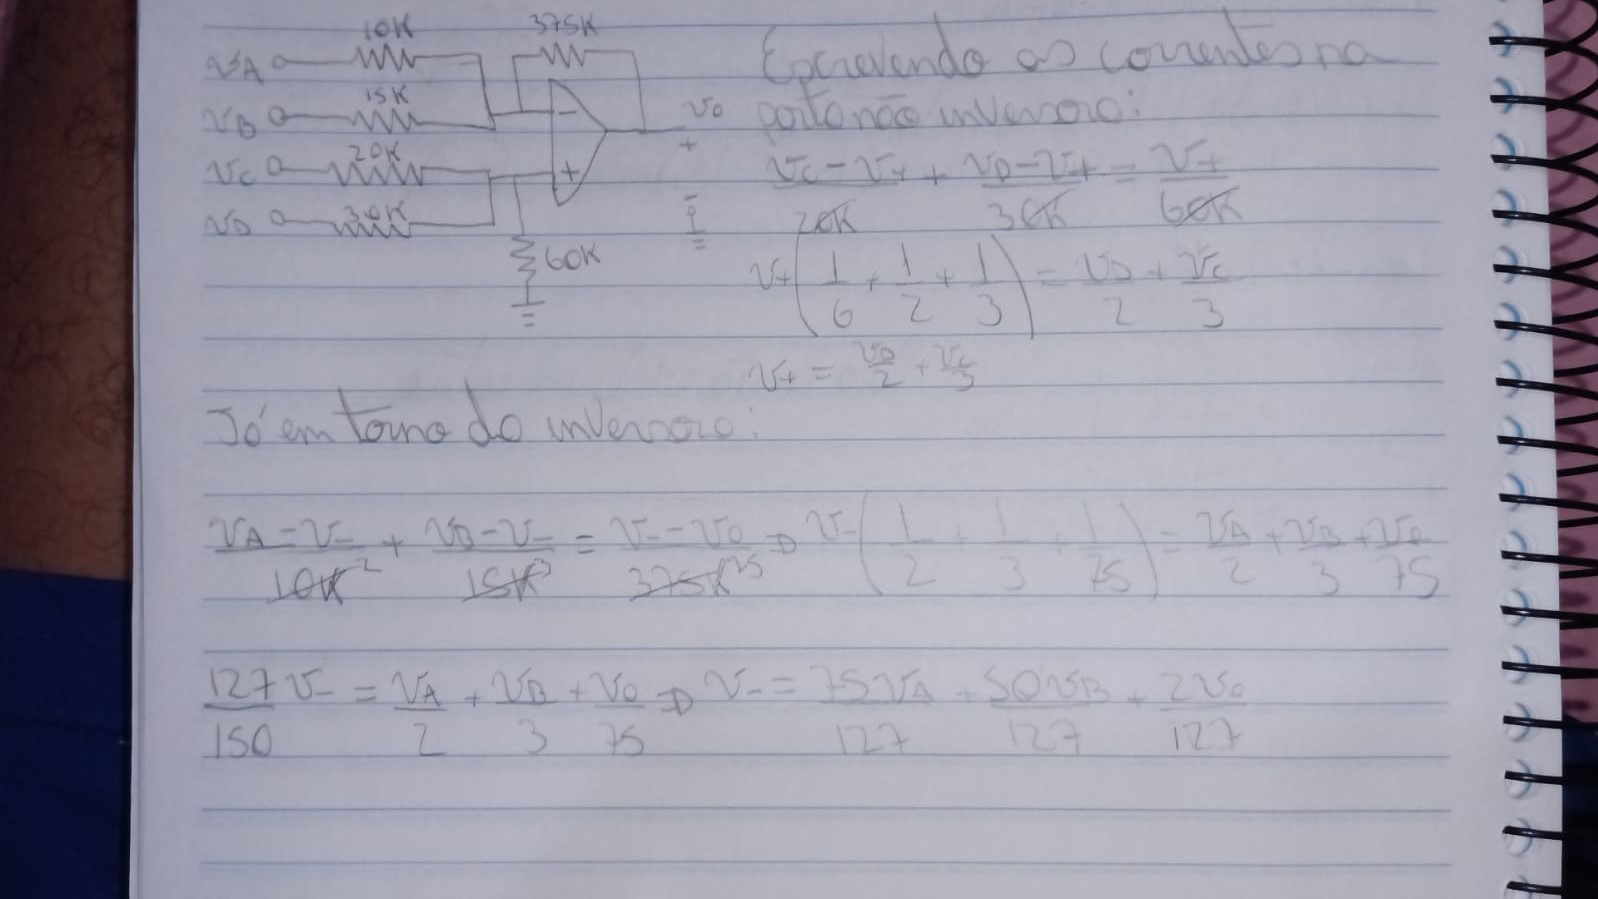 10K
375K
vA
15K
vB
vo
20K
vC
30K
vD
-
+
+
-
60K
Escrevendo as correntes na
porta não inversora:
vC - v+ / 20K + vD - v+ / 30K = v+ / 60K
v+ (1/6 + 1/2 + 1/3) = vD/2 + vC/3
v+ = vD/2 + vC/3
Já em torno da inversora:
vA - v- / 10K² + vB - v- / 15K³ = v- - vo / 375K⁷⁵ ⇒ v- (1/2 + 1/3 + 1/75) = vA/2 + vB/3 + vo/75
127/150 v- = vA/2 + vB/3 + vo/75 ⇒ v- = 75vA/127 + 50vB/127 + 2vo/127